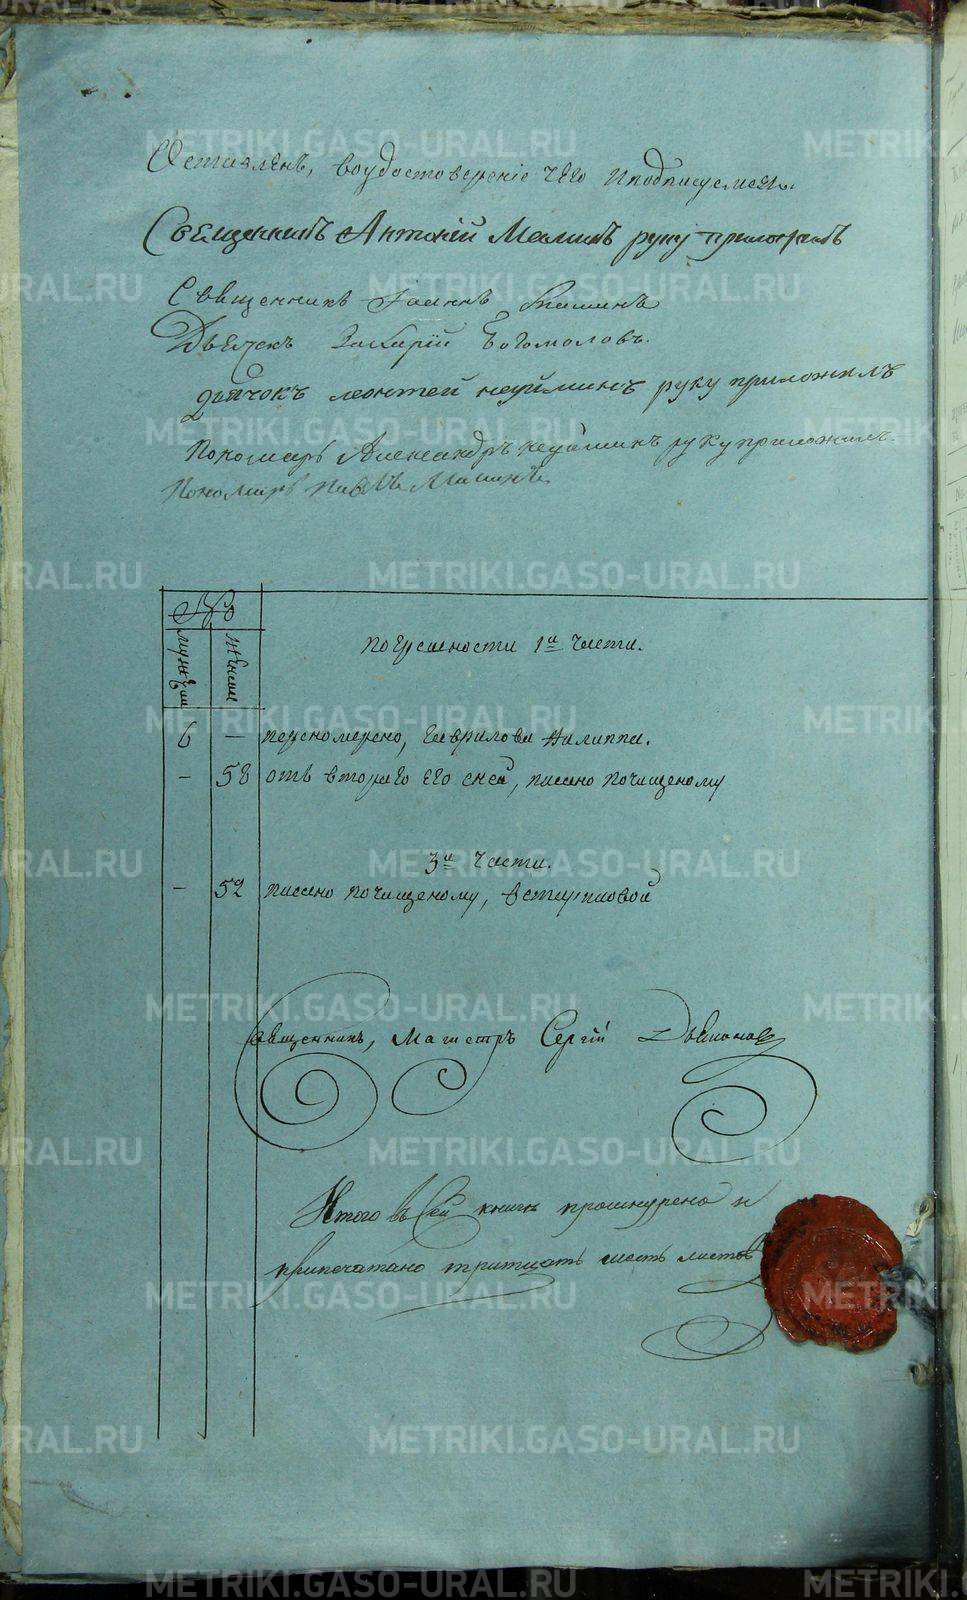 оставленъ, во удостовереніе чего и подписуемся.
Священникъ Антоній Малинъ руку приложилъ
Священникъ Іоаннъ
Дьячекъ Захарій Богомоловъ.
дьячокъ леонтей неуйминъ руку приложилъ
Пономарь Александръ неуйминъ руку приложилъ.
Пономарь Павелъ
№
мужеск женск
погрешности 1й части.
6 — переномерено, Гаврилова Филиппа.
— 58 отъ втораго его сна, писано почищеному
3й части.
— 52 писано почищеному,
Священникъ, Магистръ Сергій
Итого въ сей книгѣ прошнурено и
припечатано тритцать шесть листовъ
METRIKI.GASO-URAL.RU